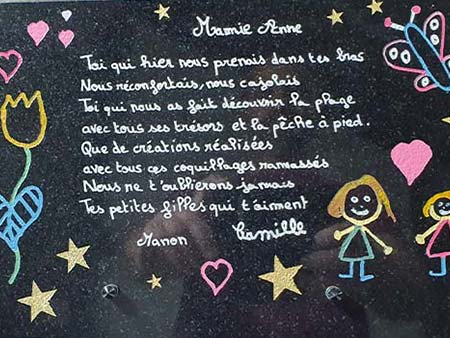 Mamie Anne
Toi qui hier nous prenais dans tes bras
Nous réconfortais, nous cajolais
Toi qui nous as fait découvrir la plage
avec tous ses trésors et la pêche à pied.
Que de créations réalisées
avec tous ces coquillages ramassés
Nous ne t'oublierons jamais
Tes petites filles qui t'aiment
Manon Camille